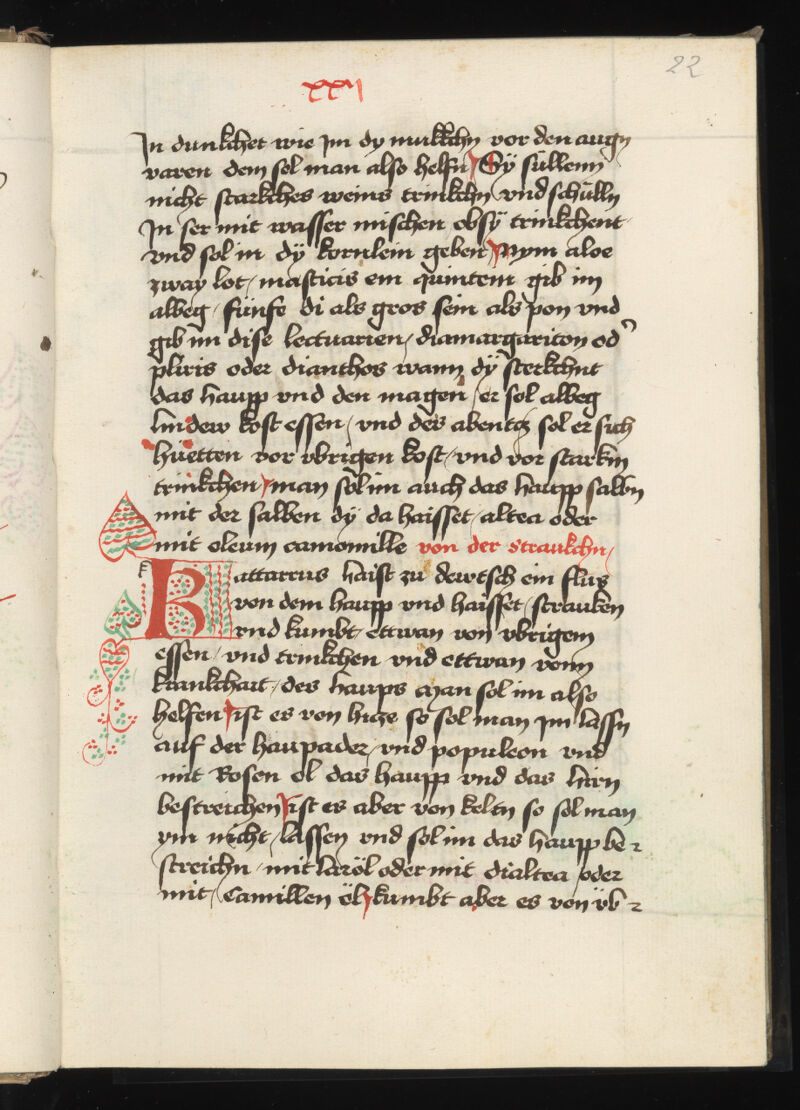 22
xxij
In dunkchet wie jm dy mukkchn vor den augn
varen dem sol man also helfn Sÿ süllenn
nicht starkches weins trinkchn vnd schülln
In ser mit wasser mischen ob sÿ trinkchent
vnd sol in dÿ kornlein geben Nym aloe
zway lot / masticis ein quintein gib im
albeg / fünfe di als gros sein als pon vnd
gib im dise lectuarien / diamargariton od
pliris oder dianthos wann dÿ sterkchnt
das haupp vnd den magen / er sol albeg
lindew kost essen / vnd des abentz sol er sich
hüetten vor vbrigen kost / vnd vor starkm
trinkchen / man sol im auch das haupp salbn
mit der salben dÿ da haisset / altea oder
mit oleum camomille von der straukchn /
Kattarrus haist zu dewtsch ein flus
von dem haupp vnd haisset / strauken
vnd kumbt / ettwan von vbrigem
essen / vnd trinkchen vnd ettwan vonn
krankchait / des haups man sol im also
helfen ist es von hicze so sol man jm lassn
auf der haupader / vnd populeon vnd
mit Rosen ol das haupp vnd das hirn
bestreichen ist es aber von kelten so sol man
ym nicht / lassen vnd sol im das haupp be
streichn / mit laröl oder mit dialtea / oder
mit / Camillen öl kumbt aber es von üb